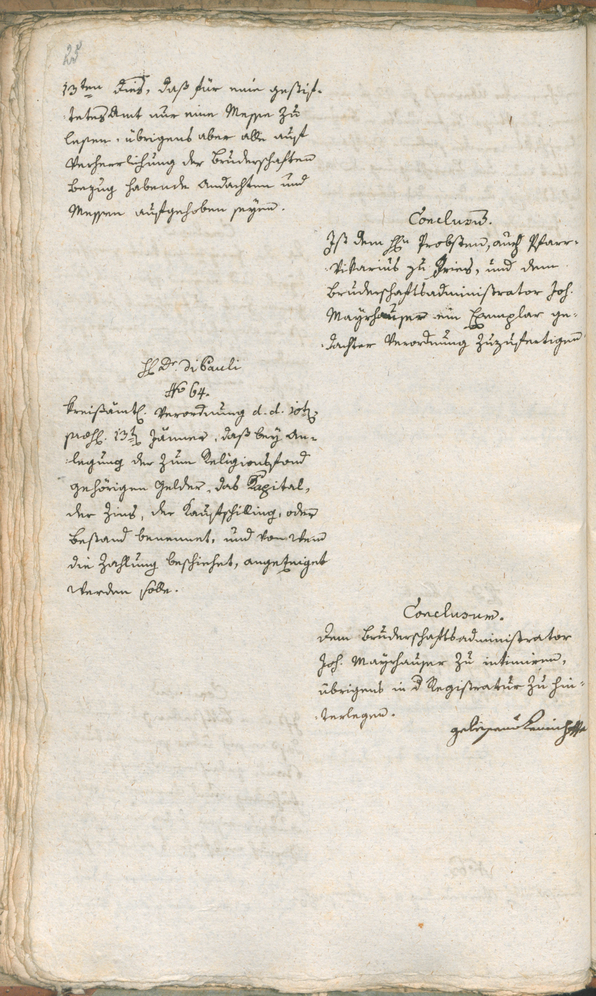 25
13ten dies, daß für eine gestif-
tetes Amt nur eine Messe zu
lesen, übrigens aber alle auf
Verherrlichung der Bruderschaften
Bezug habende Andachten und
Messen aufgehoben seyen.
Conclusum.
Ist dem Hn Probsten, auch Pfarr-
Vikarius zu Gries, und dem
Bruderschaftsadministrator Joh.
Mayrhauser ein Exemplar ge-
dachter Verordnung zuzufertigen
H Dr Di Pauli
No 64.
Kreisämtl. Verordnung d. d.
13t Jänner, daß bey An-
legung der zum Religionsfond
gehörigen Gelder, das Kapital,
der Zins, der Kaufschilling, oder
Bestand benennet, und von wem
die Zahlung beschiehet, angezeiget
werden solle.
Conclusum.
Dem Bruderschaftsadministrator
Joh. Mayrhauser zu intimiren,
übrigens in d Registratur zu hin-
terlegen.